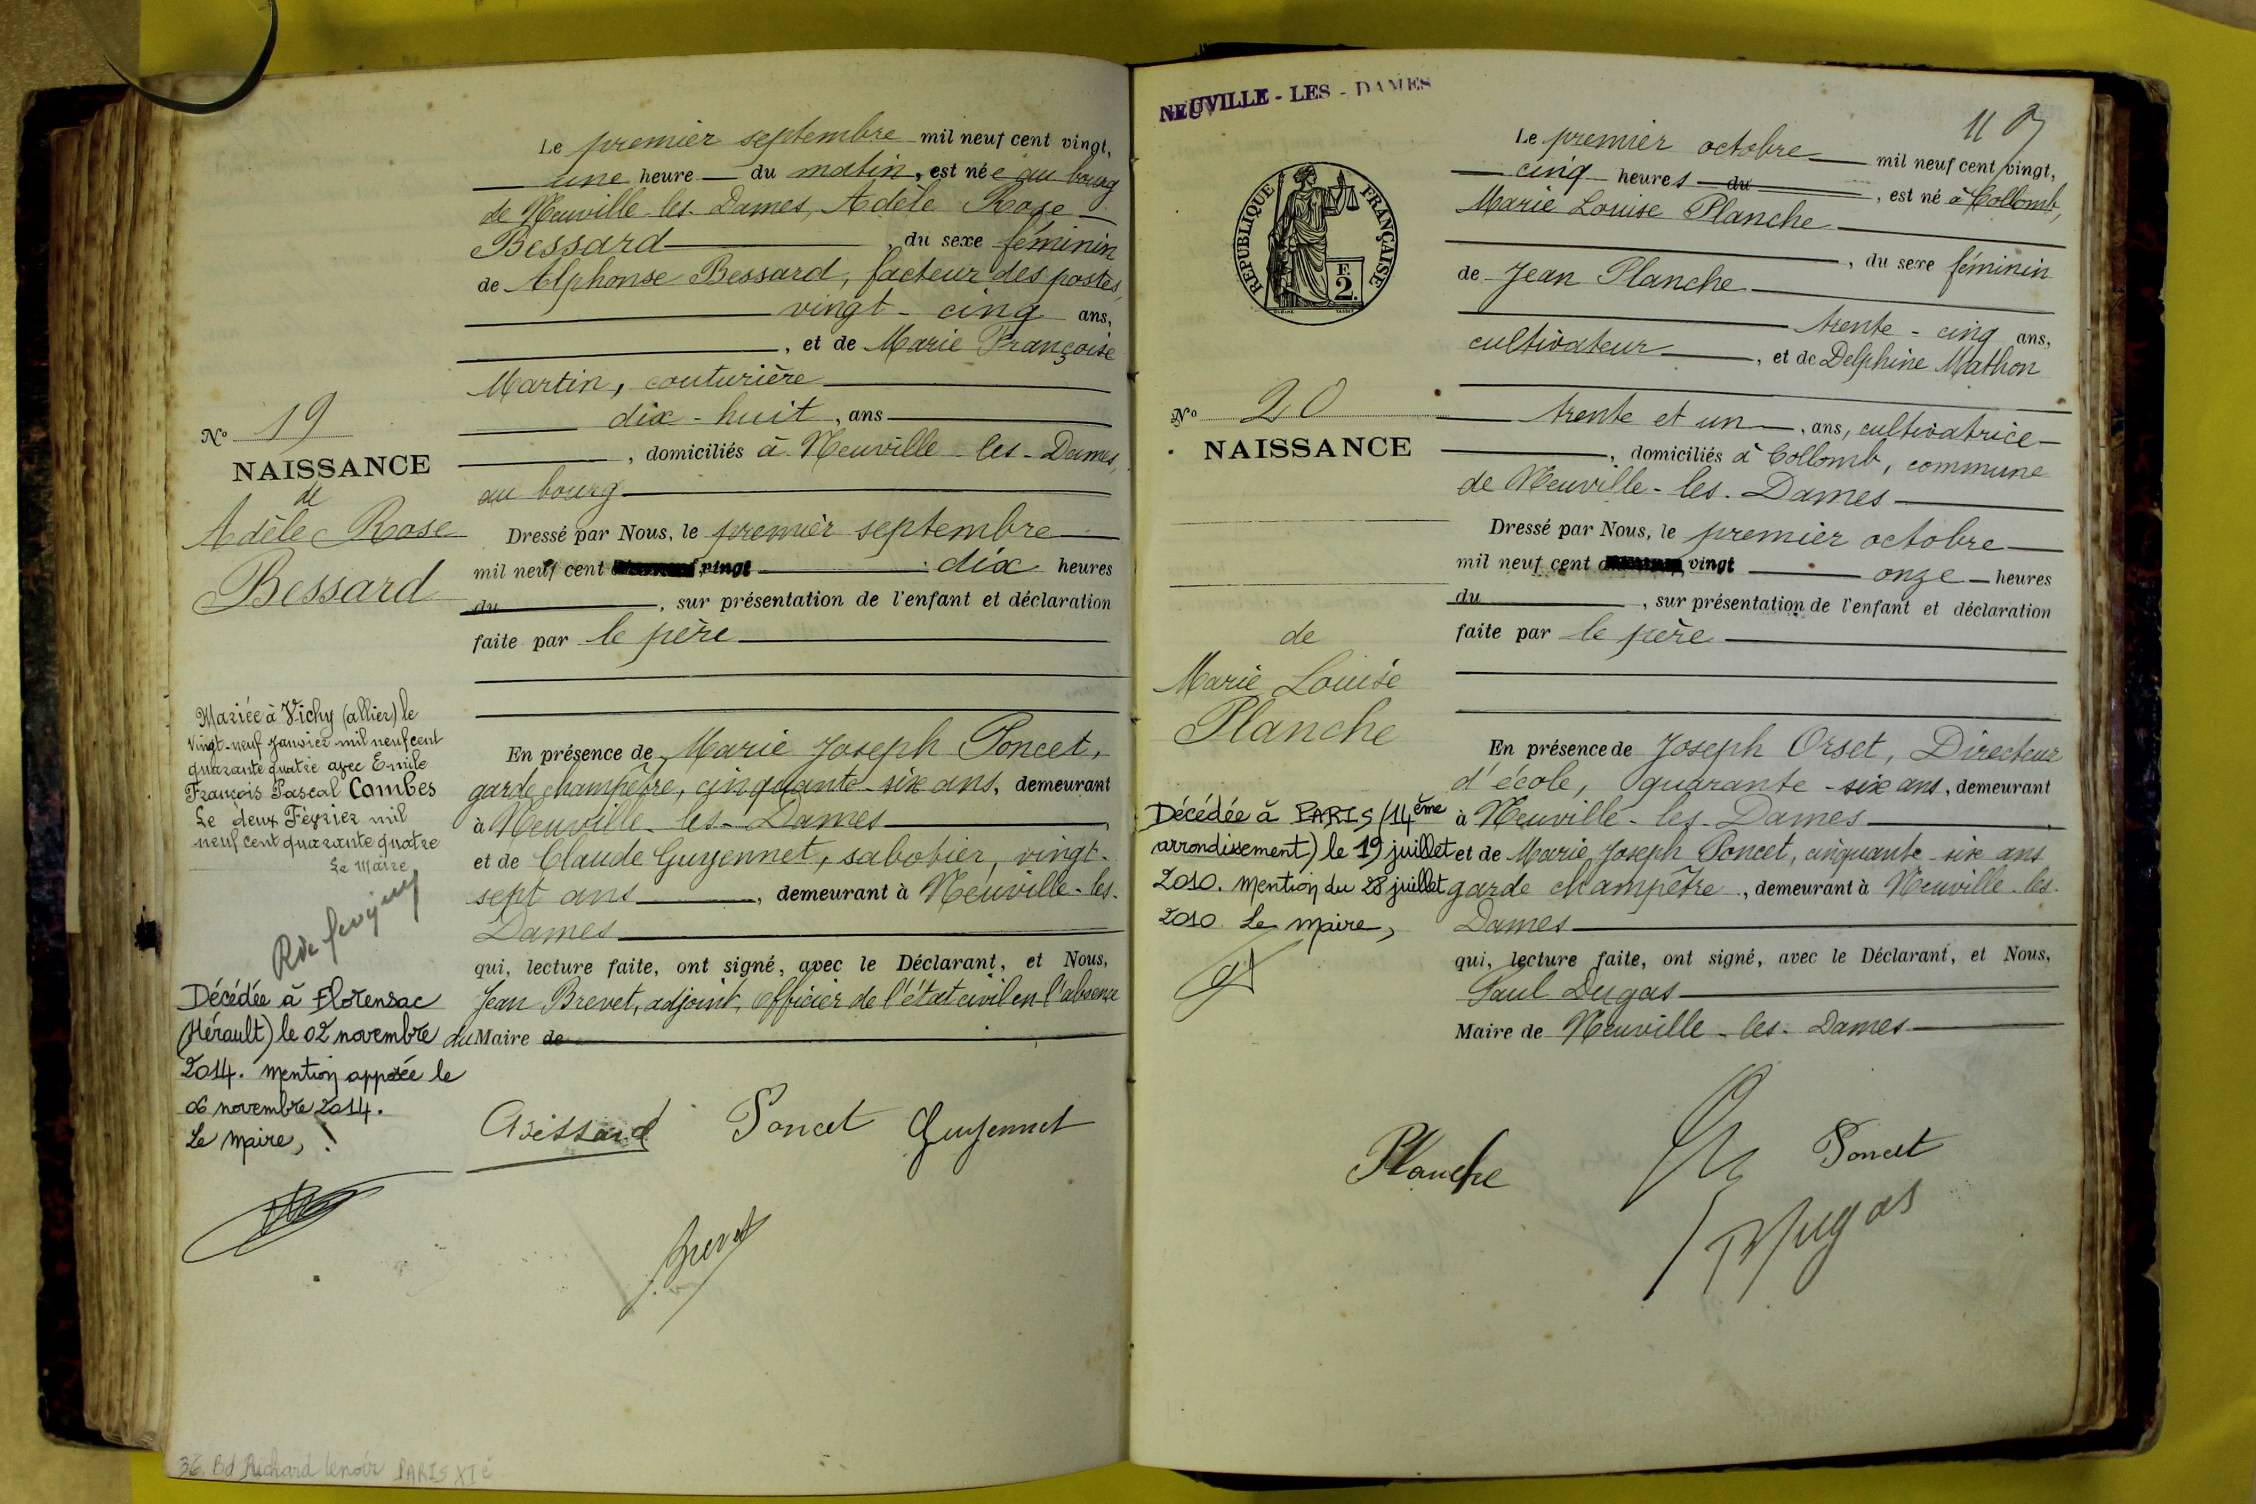 Le premier septembre mil neuf cent vingt,
une heure du matin, est née au bourg
de Neuville-les-Dames, Adèle Rose
Bessard, du sexe féminin
de Alphonse Bessard, facteur des postes,
vingt-cinq ans,
, et de Marie Françoise
Martin, couturière
dix-huit, ans
, domiciliés à Neuville-les-Dames,
au bourg
Dressé par Nous, le premier septembre
mil neuf cent vingt dix heures
du, sur présentation de l'enfant et déclaration
faite par le père
En présence de Marie Joseph Poncet,
garde champêtre, cinquante-six ans, demeurant
à Neuville-les-Dames
et de Claude Guyennet, sabotier, vingt-
sept ans, demeurant à Neuville-les-
Dames
qui, lecture faite, ont signé, avec le Déclarant, et Nous,
Jean Brevet, adjoint, officier de l'état civil en l'absence
du Maire de
ABessard Poncet Guyennet
J. Brevet
No 19
NAISSANCE
de
Adèle Rose
Bessard
Mariée à Vichy (allier) le
vingt-neuf Janvier mil neuf cent
quarante quatre avec Emile
François Pascal Combes
Le deux Février mil
neuf cent quarante quatre
Le Maire
Décédée à Florensac
(Hérault) le 02 novembre
2014. Mention apposée le
06 novembre 2014.
Le Maire,
36, Bd Richard Lenoir PARIS XIè
NEUVILLE-LES-DAMES
RÉPUBLIQUE FRANÇAISE
F.
2.
No 20
NAISSANCE
de
Marie Louise
Planche
Décédée à PARIS (14ème
arrondissement) le 19 juillet
2010. Mention du 28 juillet
2010. Le Maire,
Le premier octobre mil neuf cent vingt,
cinq heures du, est né à Collomb,
Marie Louise Planche
, du sexe féminin
de Jean Planche
trente-cinq ans,
cultivateur, et de Delphine Mathon
trente et un, ans, cultivatrice
, domiciliés à Collomb, commune
de Neuville-les-Dames
Dressé par Nous, le premier octobre
mil neuf cent vingt onze heures
du, sur présentation de l'enfant et déclaration
faite par le père
En présence de Joseph Orset, Directeur
d'école, quarante-six ans, demeurant
à Neuville-les-Dames
et de Marie Joseph Poncet, cinquante-six ans
garde champêtre, demeurant à Neuville-les-
Dames
qui, lecture faite, ont signé, avec le Déclarant, et Nous,
Paul Dugas
Maire de Neuville-les-Dames
Planche Poncet
Dugas